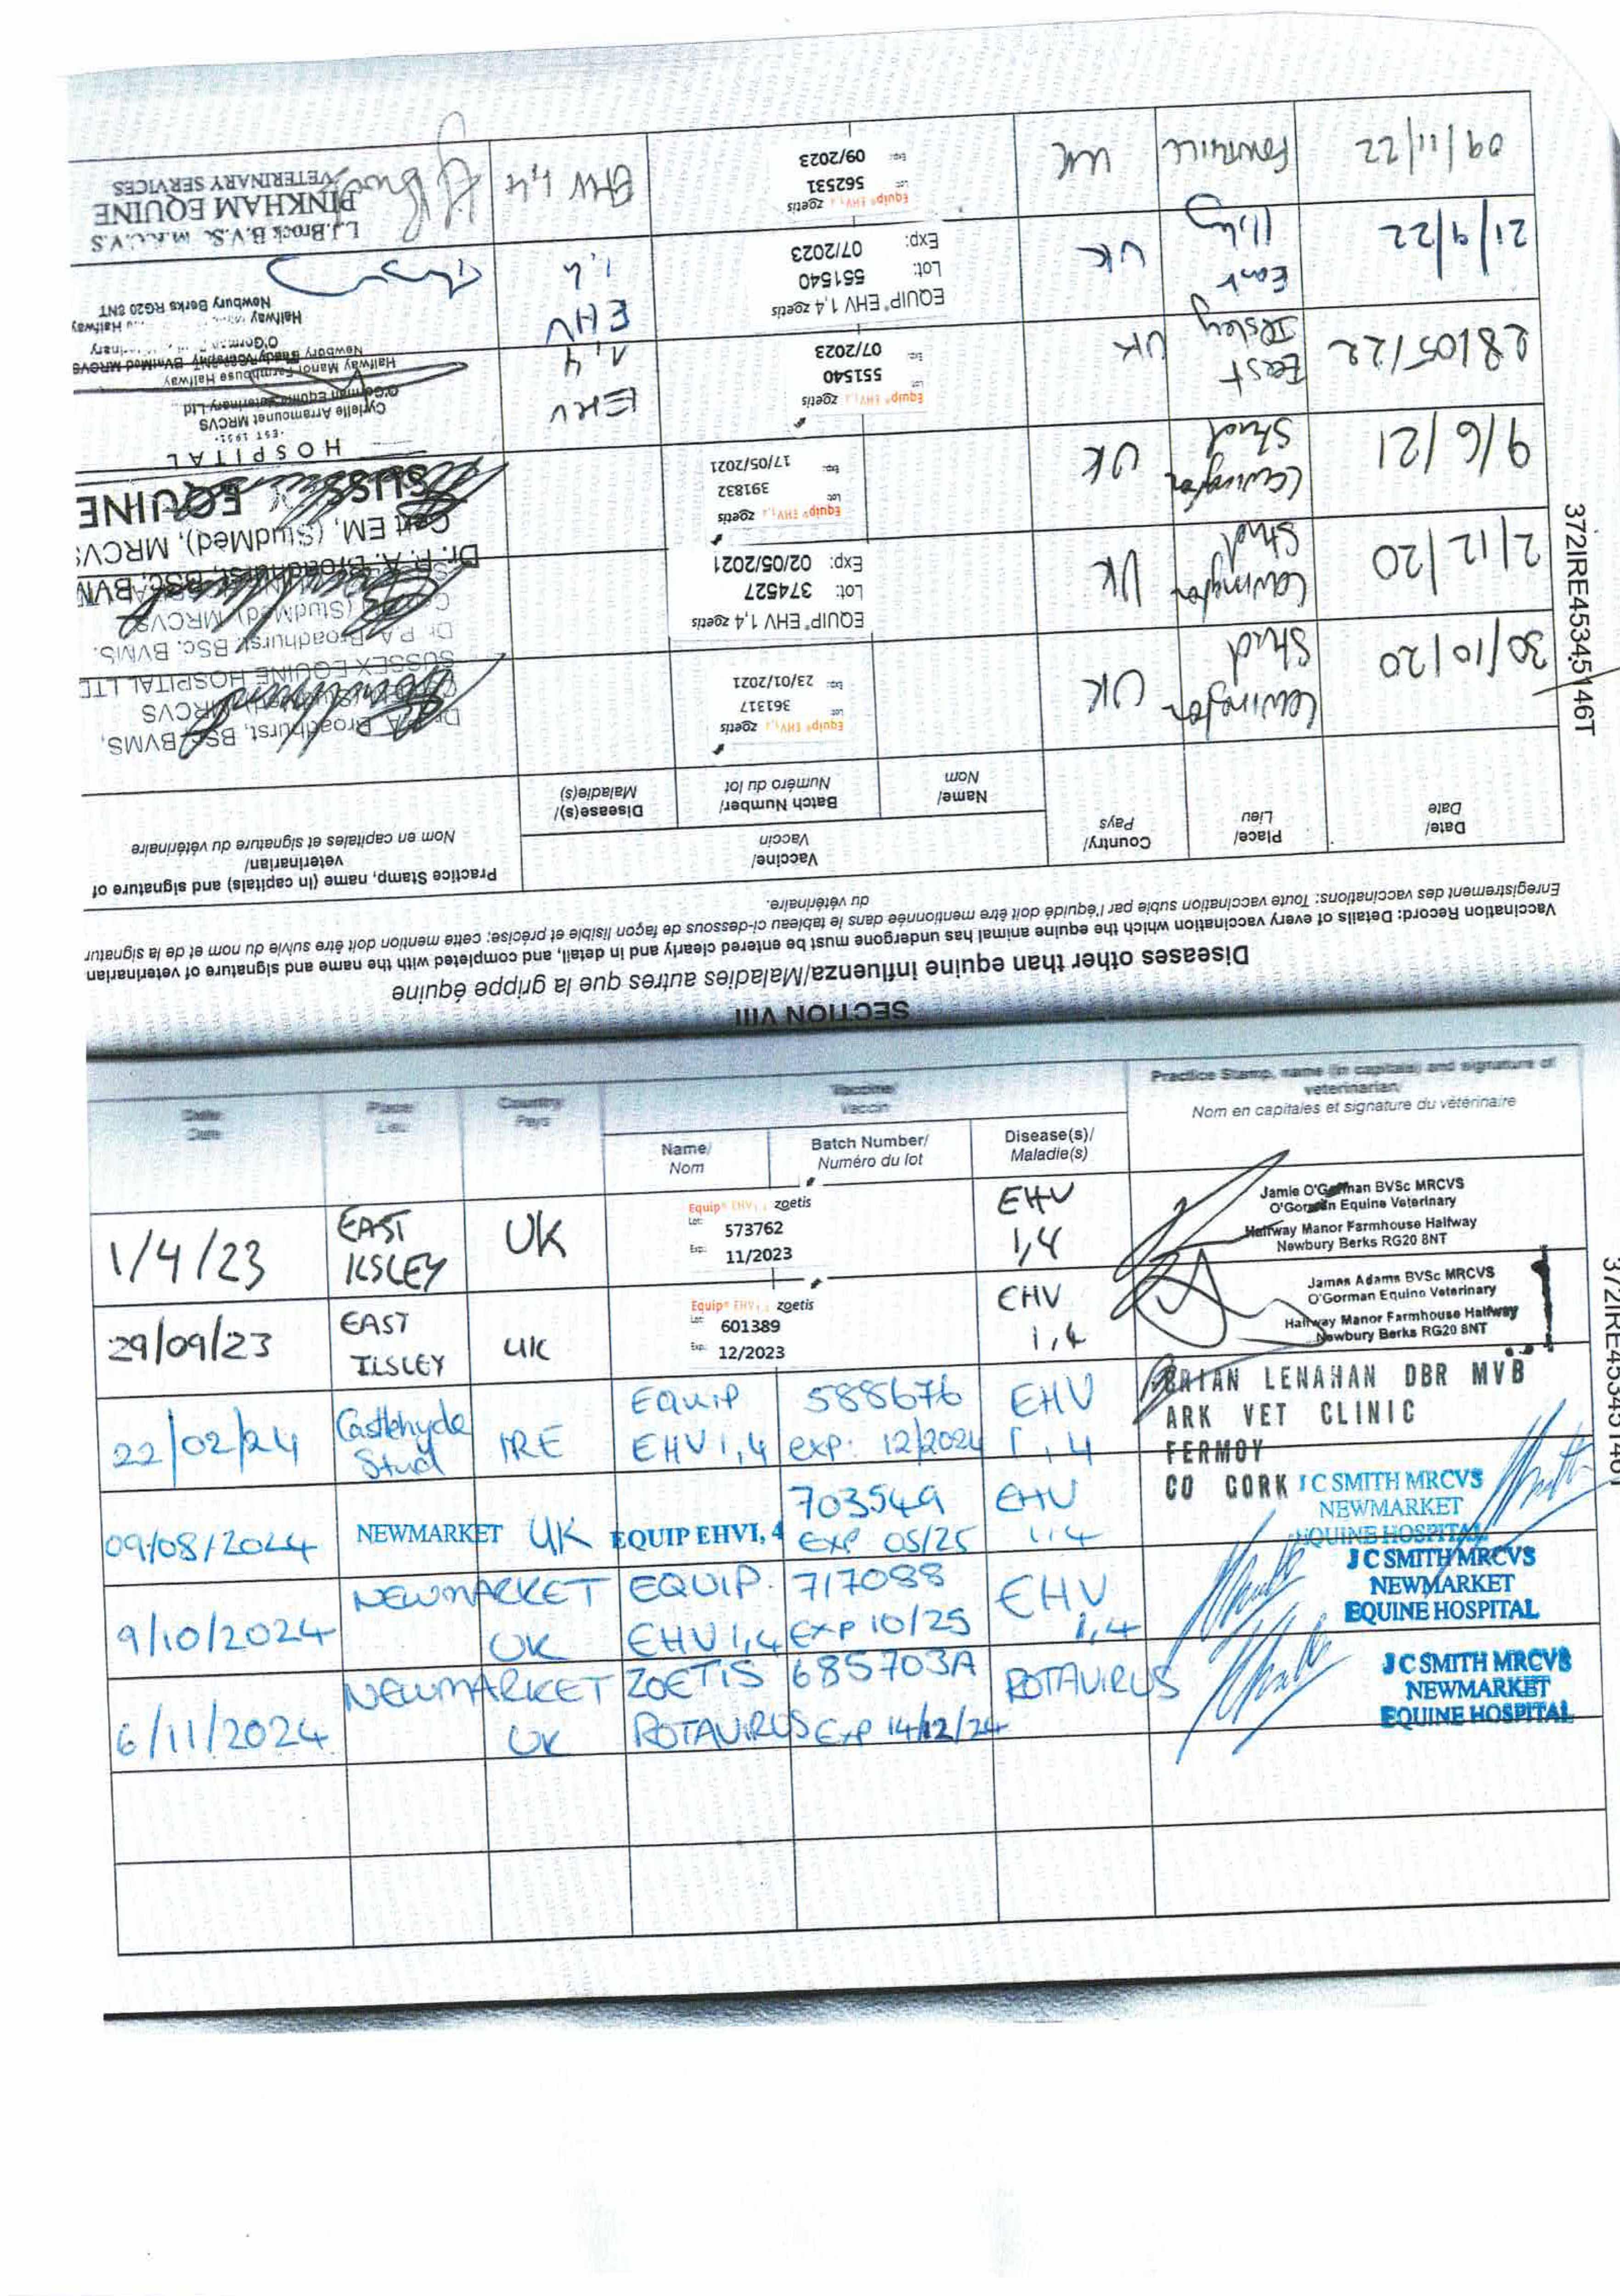 SECTION VIII
Diseases other than equine influenza/Maladies autres que la grippe équine
Vaccination Record: Details of every vaccination which the equine animal has undergone must be entered clearly and in detail, and completed with the name and signature of veterinarian
Enregistrement des vaccinations: Toute vaccination subie par l'équidé doit être mentionnée dans le tableau ci-dessous de façon lisible et précise; cette mention doit être suivie du nom et de la signatur
du vétérinaire.
Date/ Date
Place/ Lieu
Country/ Pays
Vaccine/ Vaccin
Name/ Nom
Batch Number/ Numéro du lot
Disease(s)/ Maladie(s)
Practice Stamp, name (in capitals) and signature of veterinarian/
Nom en capitales et signature du vétérinaire
372IRE45345146T
30/10/20 Lavington Stud UK Equip EHV1,4 zoetis Lot: 361317 Exp: 23/01/2021
Dr. P.A. Broadhurst, BSc. BVMS, MRCVS
SUSSEX EQUINE HOSPITAL LTD
2/12/20 Lavington Stud UK EQUIP® EHV 1,4 zoetis Lot: 374527 Exp: 02/05/2021
Dr. P.A. Broadhurst, BSc. BVMS. (StudMed) MRCVS
9/6/21 Lavington Stud UK Equip® EHV1,4 zoetis Lot 391832 Exp: 17/05/2021
Dr. P. A. Broadhurst, BSc. BVM
Cert EM, (StudMed), MRCVS
SUSSEX EQUINE
HOSPITAL
EST 1951
28/05/22 East Ilsley UK Equip® EHV1,4 zoetis Lot 551540 Exp: 07/2023 EHV 1,4
Cyrielle Arramounet MRCVS
O'Gorman Equine Veterinary Ltd
Halfway Manor Farmhouse Halfway
21/9/22 East Ilsley UK EQUIP® EHV 1,4 zoetis Lot: 551540 Exp: 07/2023 EHV 1,4
Halfway
Newbury Berks RG20 8NT
09/11/22 FONTHILL UK Equip® EHV1,4 zoetis Lot 562531 Exp: 09/2023 EHV 1,4
L.J. Brock B.V.Sc M.R.C.V.S
PINKHAM EQUINE
VETERINARY SERVICES
Date/ Date
Place/ Lieu
Country/ Pays
Vaccine/ Vaccin
Name/ Nom
Batch Number/ Numéro du lot
Disease(s)/ Maladie(s)
Practice Stamp, name (in capitals) and signature of veterinarian/
Nom en capitales et signature du vétérinaire
1/4/23 EAST ILSLEY UK Equip® EHV1,4 zoetis Lot: 573762 Exp: 11/2023 EHV 1,4
Jamie O'Gorman BVSc MRCVS
O'Gorman Equine Veterinary
Halfway Manor Farmhouse Halfway
Newbury Berks RG20 8NT
29/09/23 EAST ILSLEY UK Equip® EHV1,4 zoetis Lot: 601389 Exp: 12/2023 EHV 1,4
James Adams BVSc MRCVS
O'Gorman Equine Veterinary
Halfway Manor Farmhouse Halfway
Newbury Berks RG20 8NT
22/02/24 Castlehyde Stud IRE Equip EHV 1,4 588676 exp: 12/2024 EHV 1,4
BRIAN LENAHAN DBR MVB
ARK VET CLINIC
FERMOY
CO CORK
09/08/2024 NEWMARKET UK EQUIP EHV1, 4 703549 EXP 05/25 EHV 1,4
J C SMITH MRCVS
NEWMARKET
EQUINE HOSPITAL
9/10/2024 NEWMARKET UK EQUIP EHV 1,4 717088 EXP 10/25 EHV 1,4
J C SMITH MRCVS
NEWMARKET
EQUINE HOSPITAL
6/11/2024 NEWMARKET UK ZOETIS ROTAVIRUS 685703A EXP 14/12/24 ROTAVIRUS
J C SMITH MRCVS
NEWMARKET
EQUINE HOSPITAL